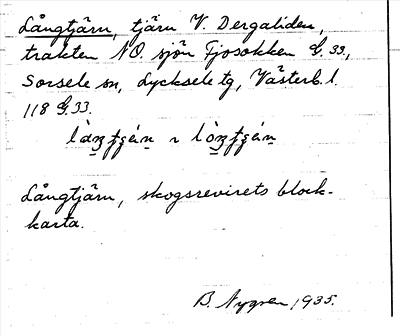 Långtjärn, tjärn V. Dergaliden,
trakten NO. sjön Fjosokken G. 33.,
Sorsele sn, Lycksele tg, Västerb. l.
118 G.33.
Långtjärn, skogsrevirets block-
karta.
B. Nygren 1935.